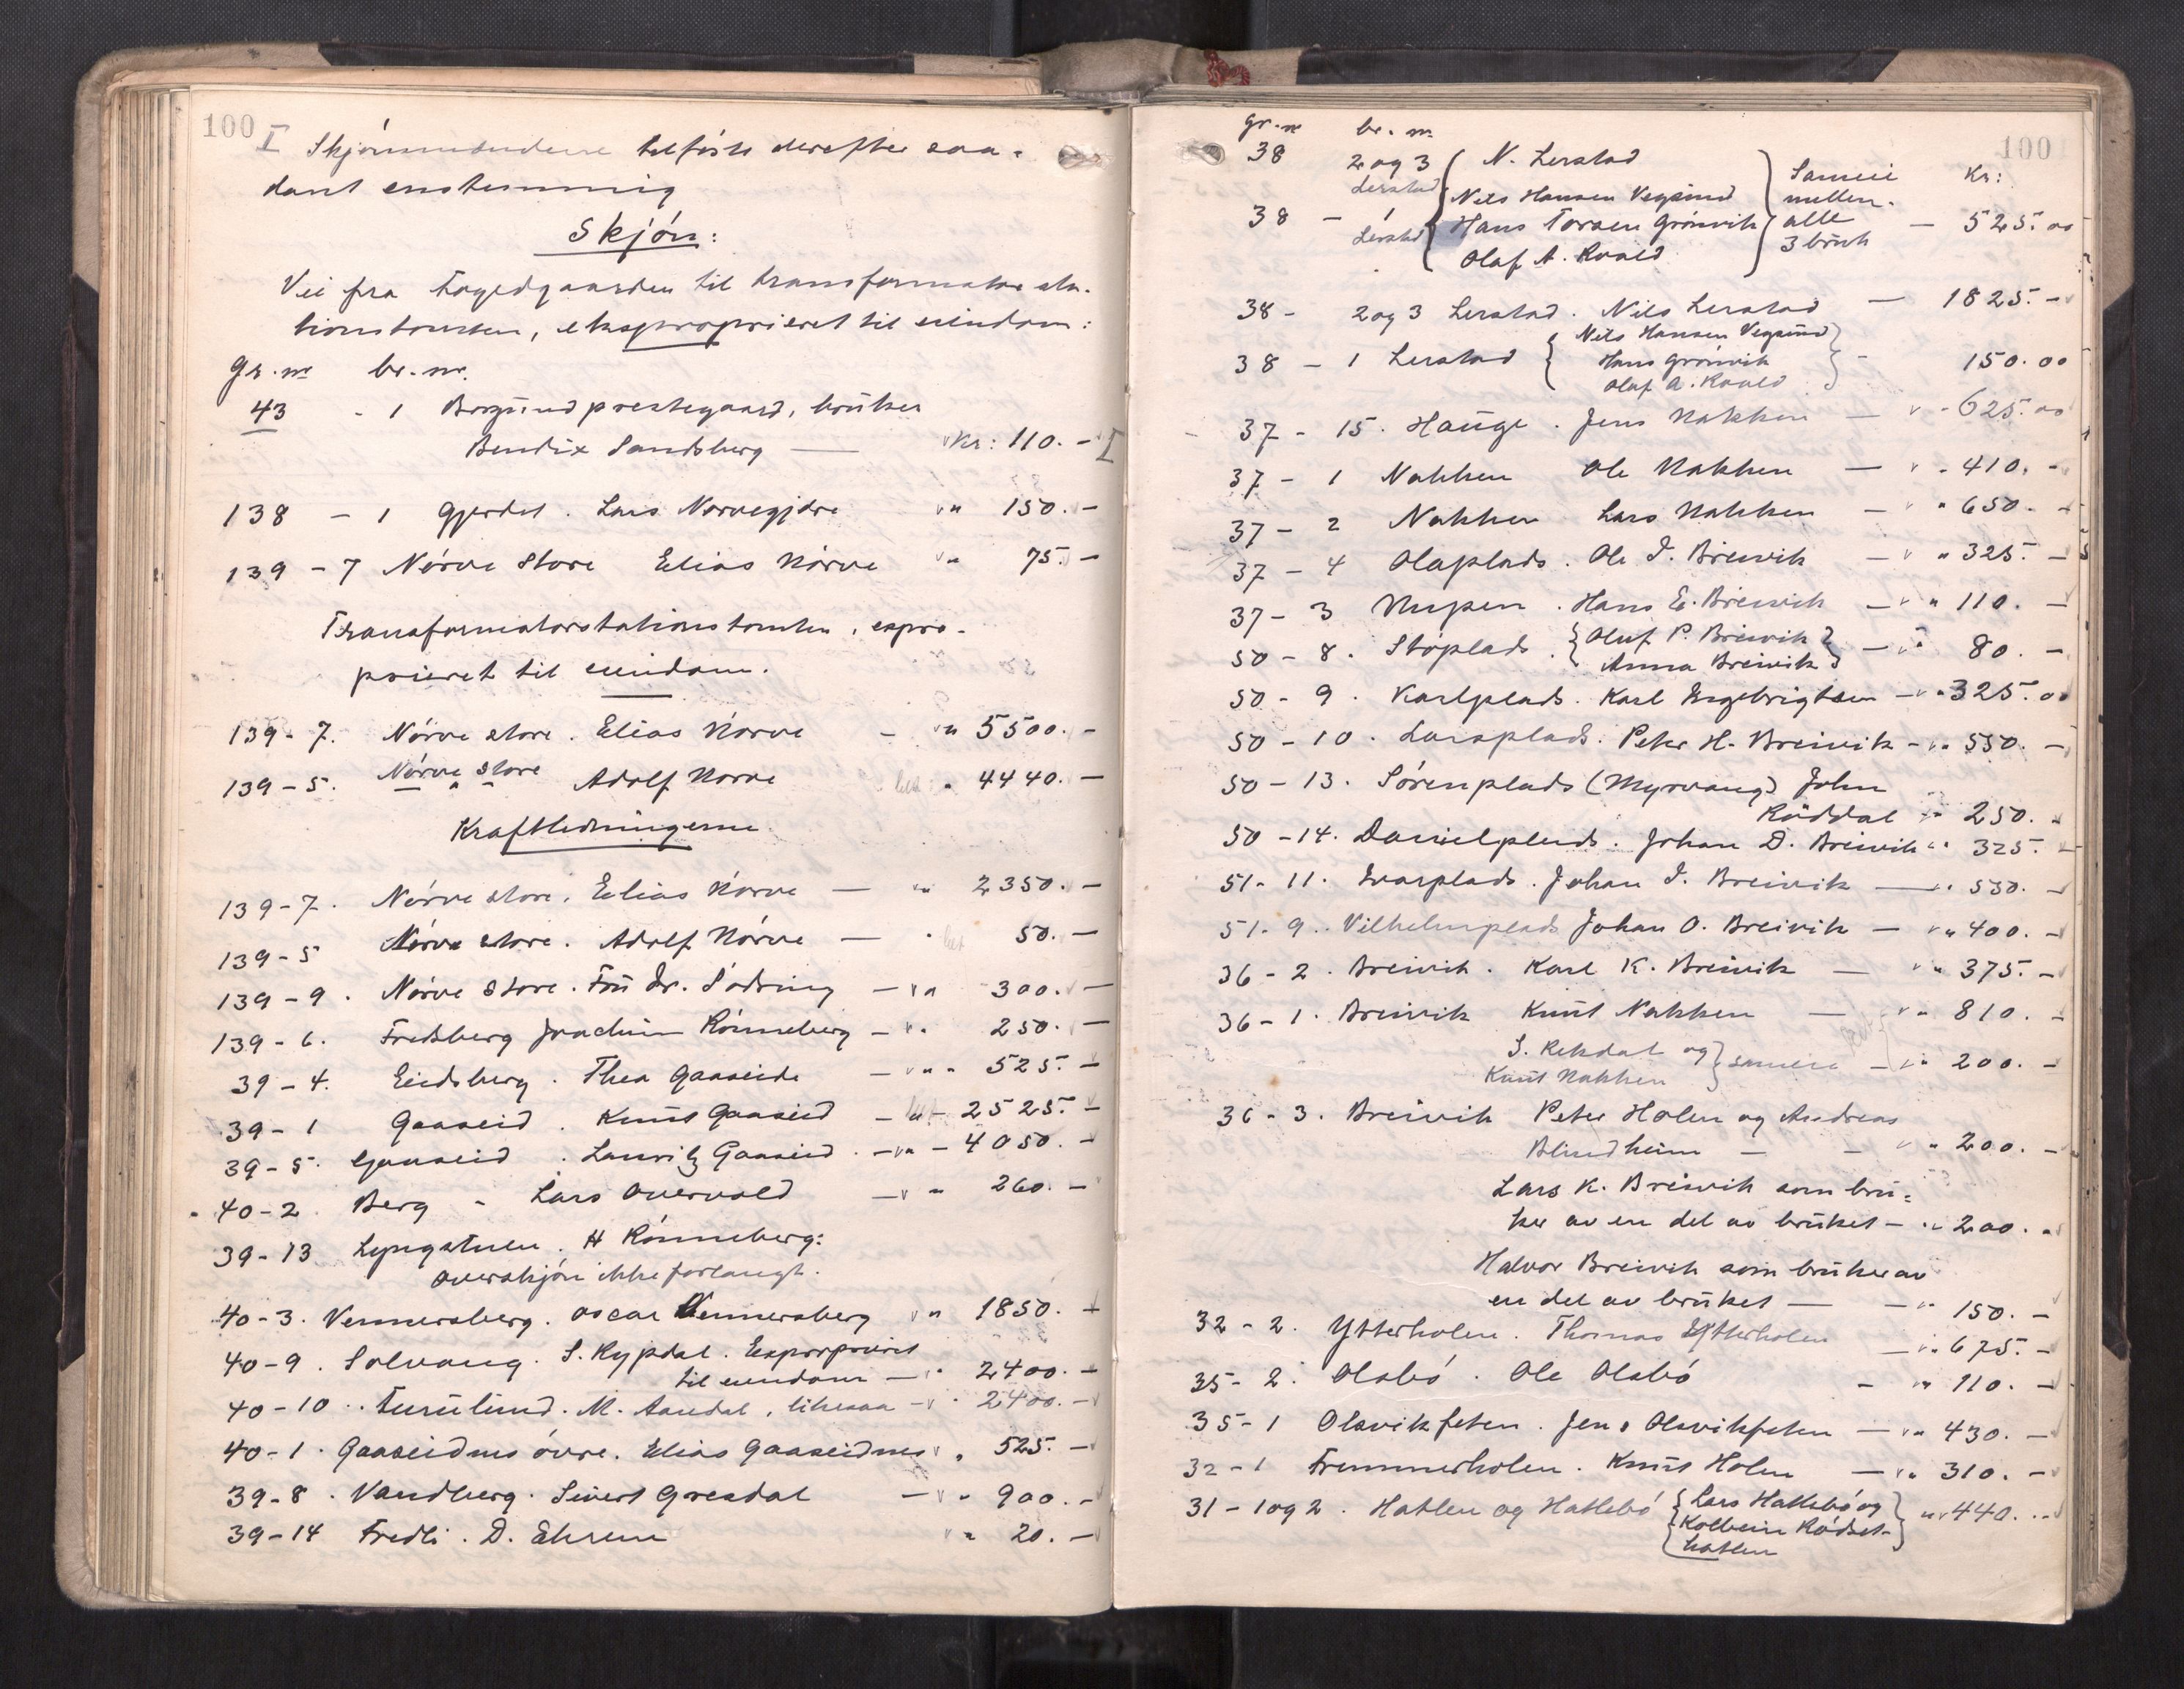 100
I Skjønnmændene tilføste derefter saa-
dant enstemmig
Skjøn:
Vei fra Fogedgaarden til transformator sta-
tionstomten, ekspropriert til eiendom:
Gr. nr br. nr.
43 - 1 Borgund prestegaard, bruker
Bendix Sandsberg — Kr: 110. - I
138 - 1 Gjerdet. Lars Nørvegjære " 150. -
139 - 7 Nørve store Elias Nørve " 75. -
Transformatorstationstomten, expro-
prieret til eiendom.
139 - 7. Nørve store. Elias Nørve - " 5500. -
139 - 5. Nørve store Adolf Nørve " 4440. -
Kraftledningerne
139 - 7. Nørve store. Elias Nørve — " 2350. -
139 - 5 Nørve store. Adolf Nørve — " 50. -
139 - 9. Nørve store. Fru Dr. Sødring — " 300. -
139 - 6. Fredsberg Joachim Rønneberg - " 250. -
39 - 4. Eidsberg. Thea Gaaseide — " 525. -
39 - 1 Gaaseid. Knut Gaaseid - 2525. -
39 - 5. Gaaseid. Lauritz Gaaseid. - " - 4050. -
40 - 2 Berg - Lars Overvold — " 260. -
39 - 13 Lyngstuen. H Rønneberg:
Overskjøn ikke forlangt.
40 - 3. Vennersberg. Oscar Vennersberg " 1850. -
40 - 9. Solvang. S. Rypdal. Exproprieret
til eiendom — " 2400. -
40 - 10. Furulund. M. Aandal, likesaa - " 2400. -
40 - 1. Gaaseidnes øvre. Elias Gaaseidnes " 525. -
39 - 8. Vandberg. Sivert Gresdal — " 900. -
39 - 14 Fredli. D. Ehrem " 20. -
100
gr. nr br. nr.
38 2 og 3 Lerstad N. Lerstad
Nils Hansen Vegsund
38 - 1 Lerstad Hans Torsen Grønvik
Olaf A. Roald
Sameie
mellem
alle
3 bruk
Kr:
— 525. 00
38 - 2 og 3 Lerstad. Nils Lerstad — 1825. -
38 - 1 Lerstad { Nils Hansen Vegsund
Hans Grønvik
Olaf A. Roald } - 150. 00
37 - 15. Hauge. Jens Nakken — " - 625. 00
37 - 1 Nakken Ole Nakken — " - 410. -
37 - 2 Nakken Lars Nakken — " 650. -
37 - 4 Olaplads. Ole I. Breivik — " 325. -
37 - 3 Nupen. Hans E. Breivik — " 110. -
50 - 8. Støplads. { Oluf P. Breivik
Anna Breivik } — " 80. -
50 - 9. Karlplads. Karl Engebrigtsen — " 325. 00
50 - 10. Larsplads. Peter H. Breivik - " 550. -
50 - 13. Sørenplads (Myrvang) John
Røddal " 250. -
50 - 14. Danielplads. Johan D. Breivik " 325. -
51 - 11. Ivarplads. Johan I. Breivik — " 550. -
51 - 9. Vilhelmplads Johan O. Breivik — " 400. -
36 - 2. Breivik. Karl K. Breivik — " 375. -
36 - 1. Breivik Knut Nakken — " 810. -
S. Rekdal og
Knut Nakken } sameie — " 200. -
36 - 3. Breivik Peter Holen og Andreas
Blindheim — - " 200. -
Lars K. Breivik som bru-
ker av en del av bruket - " 200. -
Halvor Breivik som bruker av
en del av bruket — - " 150. -
32 - 2. Ytterholen. Thomas Ytterholen — " 675. -
35 - 2. Olsbø. Ole Olsbø - " 110. -
35 - 1 Olsvikfeten. Jens Olsvikfeten — " 430. -
32 - 1 Fremmerholen. Knut Holen — " 310. -
31 - 1 og 2. Hatlen og Hatlebø { Lars Hatlebø og
Kolbein Rødset-
hatlen } " 440. -